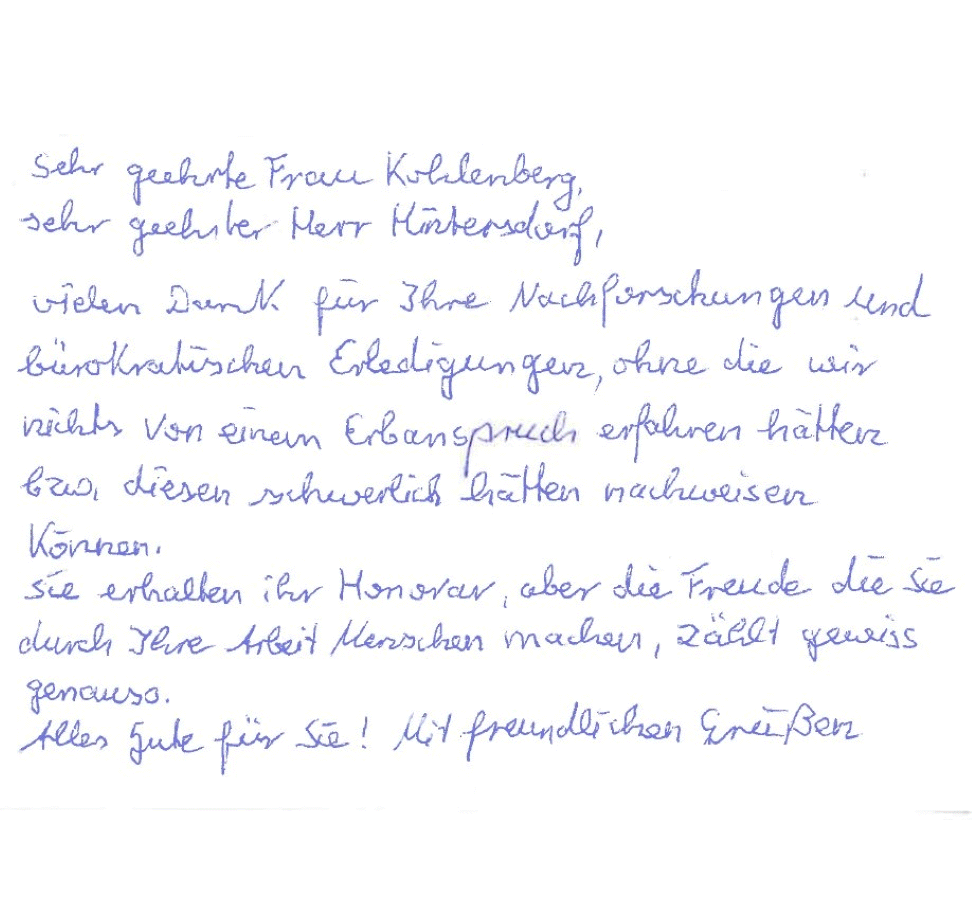 Sehr geehrte Frau Kohlenberg,
sehr geehrter Herr Hintersdorf,
vielen Dank für Ihre Nachforschungen und
bürokratischen Erledigungen, ohne die wir
nichts von einem Erbanspruch erfahren hätten
bzw. diesen schwerlich hätten nachweisen
können.
Sie erhalten ihr Honorar, aber die Freude die Sie
durch Ihre Arbeit Menschen machen, zählt gewiss
genauso.
Alles Gute für Sie! Mit freundlichen Grüßen